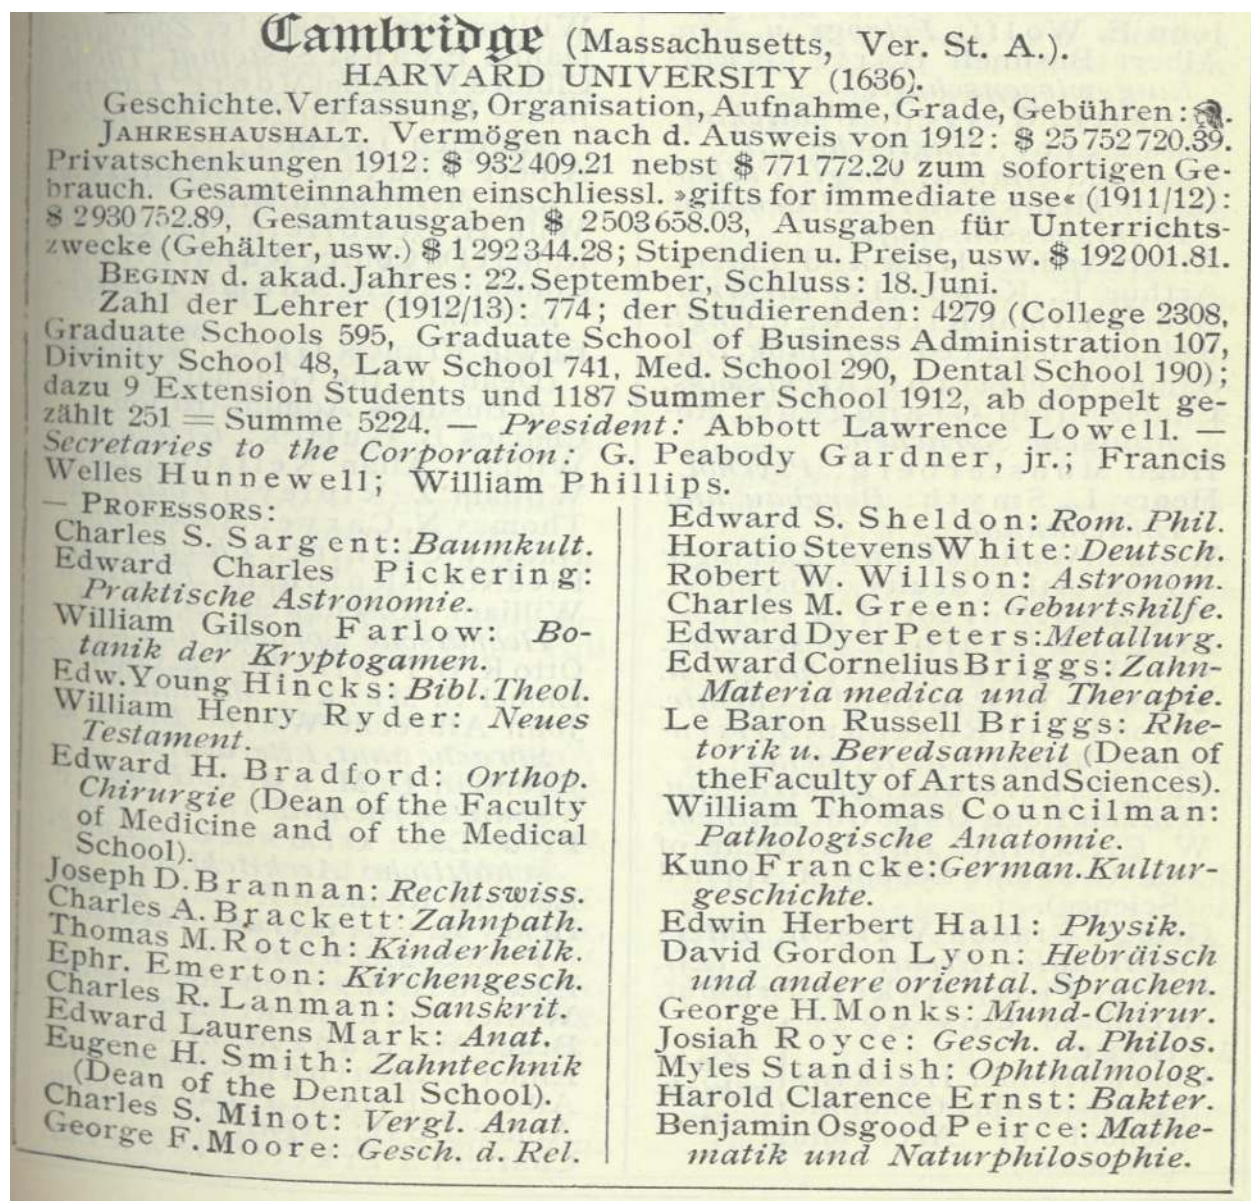 Cambridge (Massachusetts, Ver. St. A.).
HARVARD UNIVERSITY (1636).
Geschichte. Verfassung, Organisation, Aufnahme, Grade, Gebühren: .
JAHRESHAUSHALT. Vermögen nach d. Ausweis von 1912: $ 25 752 720.39.
Privatschenkungen 1912: $ 932 409.21 nebst $ 771 772.20 zum sofortigen Ge-
brauch. Gesamteinnahmen einschliessl. »gifts for immediate use« (1911/12):
$ 2 930 752.89, Gesamtausgaben $ 2 503 658.03, Ausgaben für Unterrichts-
zwecke (Gehälter, usw.) $ 1 292 344.28; Stipendien u. Preise, usw. $ 192 001.81.
BEGINN d. akad. Jahres: 22. September, Schluss: 18. Juni.
Zahl der Lehrer (1912/13): 774; der Studierenden: 4279 (College 2308,
Graduate Schools 595, Graduate School of Business Administration 107,
Divinity School 48, Law School 741, Med. School 290, Dental School 190);
dazu 9 Extension Students und 1187 Summer School 1912, ab doppelt ge-
zählt 251 = Summe 5224. — President: Abbott Lawrence Lowell. —
Secretaries to the Corporation: G. Peabody Gardner, jr.; Francis
Welles Hunnewell; William Phillips.
— PROFESSORS:
Charles S. Sargent: Baumkult.
Edward Charles Pickering:
Praktische Astronomie.
William Gilson Farlow: Bo-
tanik der Kryptogamen.
Edw. Young Hincks: Bibl. Theol.
William Henry Ryder: Neues
Testament.
Edward H. Bradford: Orthop.
Chirurgie (Dean of the Faculty
of Medicine and of the Medical
School).
Joseph D. Brannan: Rechtswiss.
Charles A. Brackett: Zahnpath.
Thomas M. Rotch: Kinderheilk.
Ephr. Emerton: Kirchengesch.
Charles R. Lanman: Sanskrit.
Edward Laurens Mark: Anat.
Eugene H. Smith: Zahntechnik
(Dean of the Dental School).
Charles S. Minot: Vergl. Anat.
George F. Moore: Gesch. d. Rel.
Edward S. Sheldon: Rom. Phil.
Horatio Stevens White: Deutsch.
Robert W. Willson: Astronom.
Charles M. Green: Geburtshilfe.
Edward Dyer Peters: Metallurg.
Edward Cornelius Briggs: Zahn-
Materia medica und Therapie.
Le Baron Russell Briggs: Rhe-
torik u. Beredsamkeit (Dean of
the Faculty of Arts and Sciences).
William Thomas Councilman:
Pathologische Anatomie.
Kuno Francke: German. Kultur-
geschichte.
Edwin Herbert Hall: Physik.
David Gordon Lyon: Hebräisch
und andere oriental. Sprachen.
George H. Monks: Mund-Chirur.
Josiah Royce: Gesch. d. Philos.
Myles Standish: Ophthalmolog.
Harold Clarence Ernst: Bakter.
Benjamin Osgood Peirce: Mathe-
matik und Naturphilosophie.